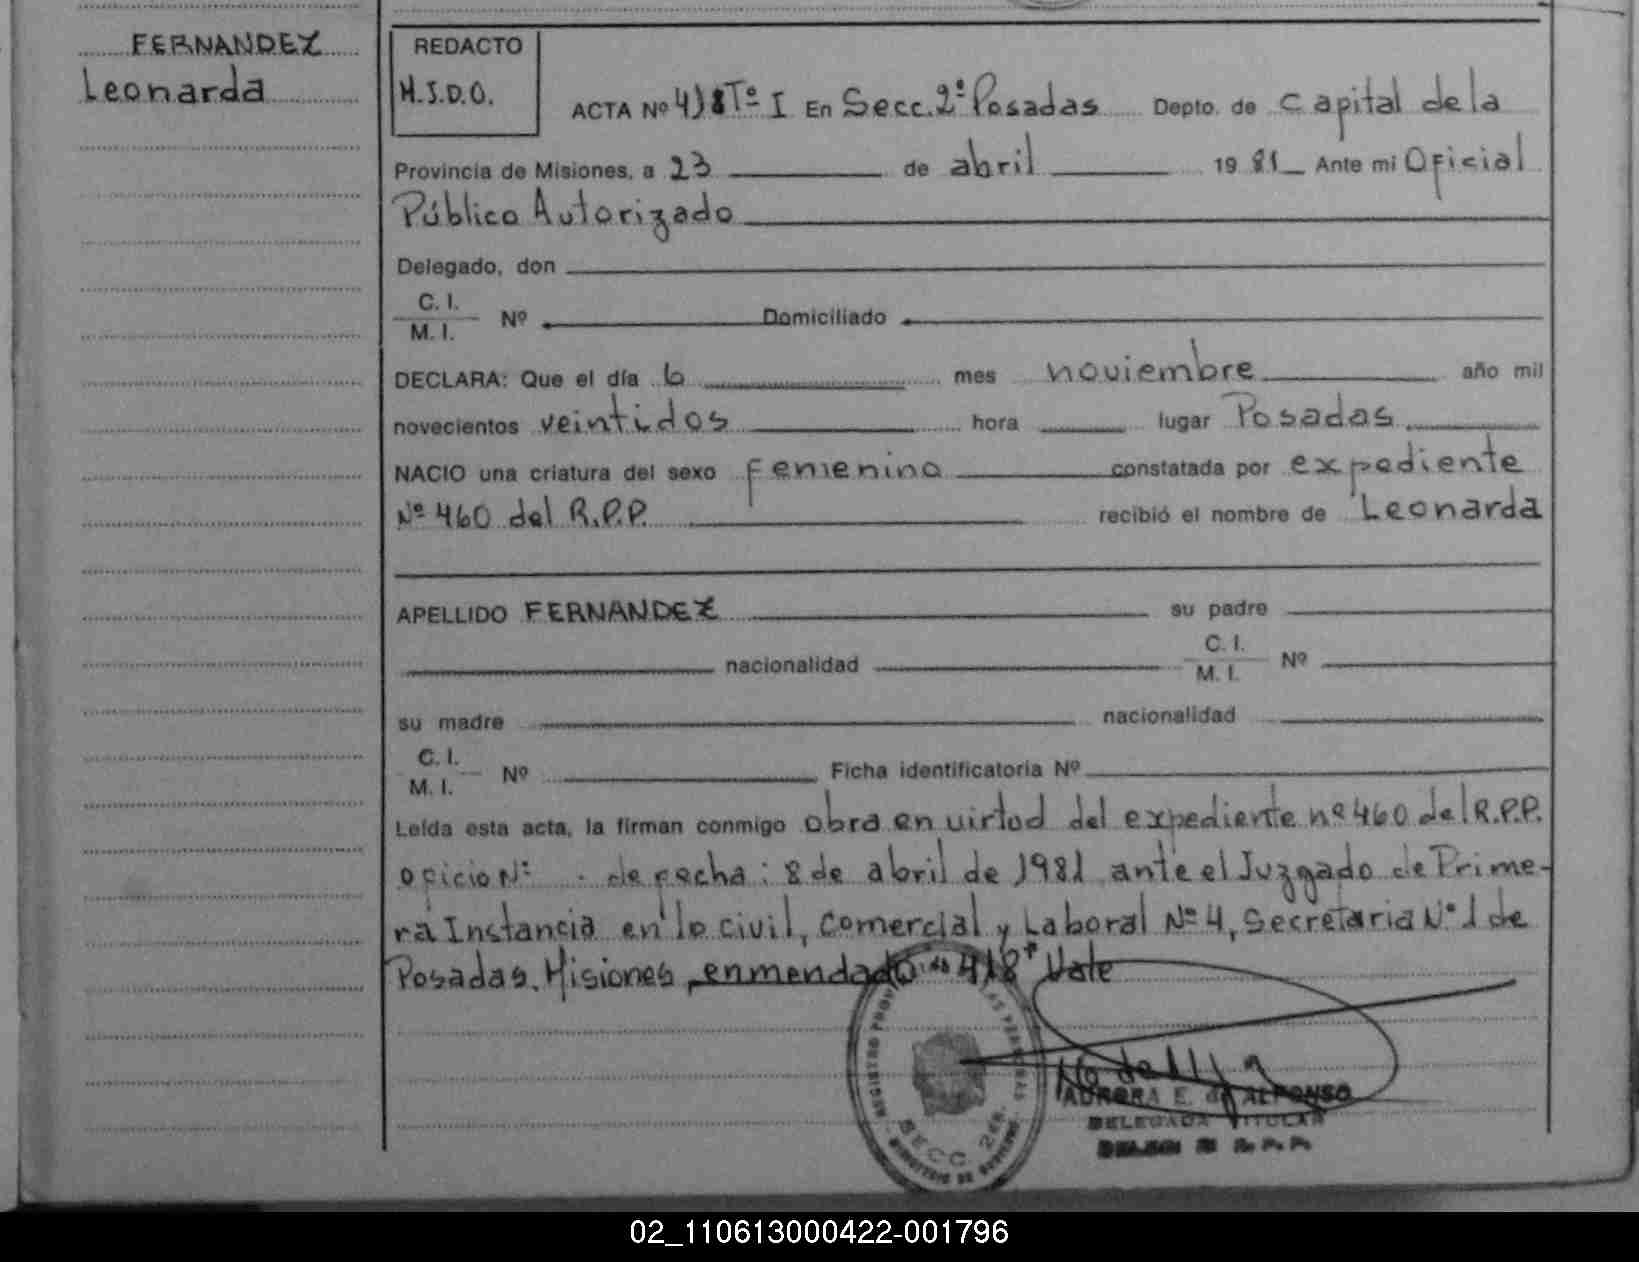 FERNANDEZ
Leonarda
REDACTO
M.S.D.O.
ACTA Nº 418 Tº I En Secc. 2º Posadas Depto. de Capital de la
Provincia de Misiones, a 23 de abril 1981 Ante mi Oficial
Público Autorizado
Delegado, don
C. I.
M. I. Nº Domiciliado
DECLARA: Que el día 6 mes noviembre año mil
novecientos veintidos hora lugar Posadas
NACIO una criatura del sexo Femenino constatada por expediente
Nº 460 del R.P.P. recibió el nombre de Leonarda
APELLIDO FERNANDEZ su padre
nacionalidad C. I. M. I. Nº
su madre nacionalidad
C. I.
M. I. Nº Ficha identificatoria Nº
Leída esta acta, la firman conmigo obra en virtud del expediente nº 460 del R.P.P.
oficio Nº - de fecha: 8 de abril de 1981 ante el Juzgado de Prime-
ra Instancia en lo civil, Comercial y Laboral Nº 4, Secretaria Nº 1 de
Posadas, Misiones, enmendado 418 Vale
REGISTRO PROV
DE LAS PERSONAS
SECC. 2da.
MINISTERIO DE GOBIERNO
AURORA E. de ALFONSO
DELEGADA TITULAR
02_110613000422-001796